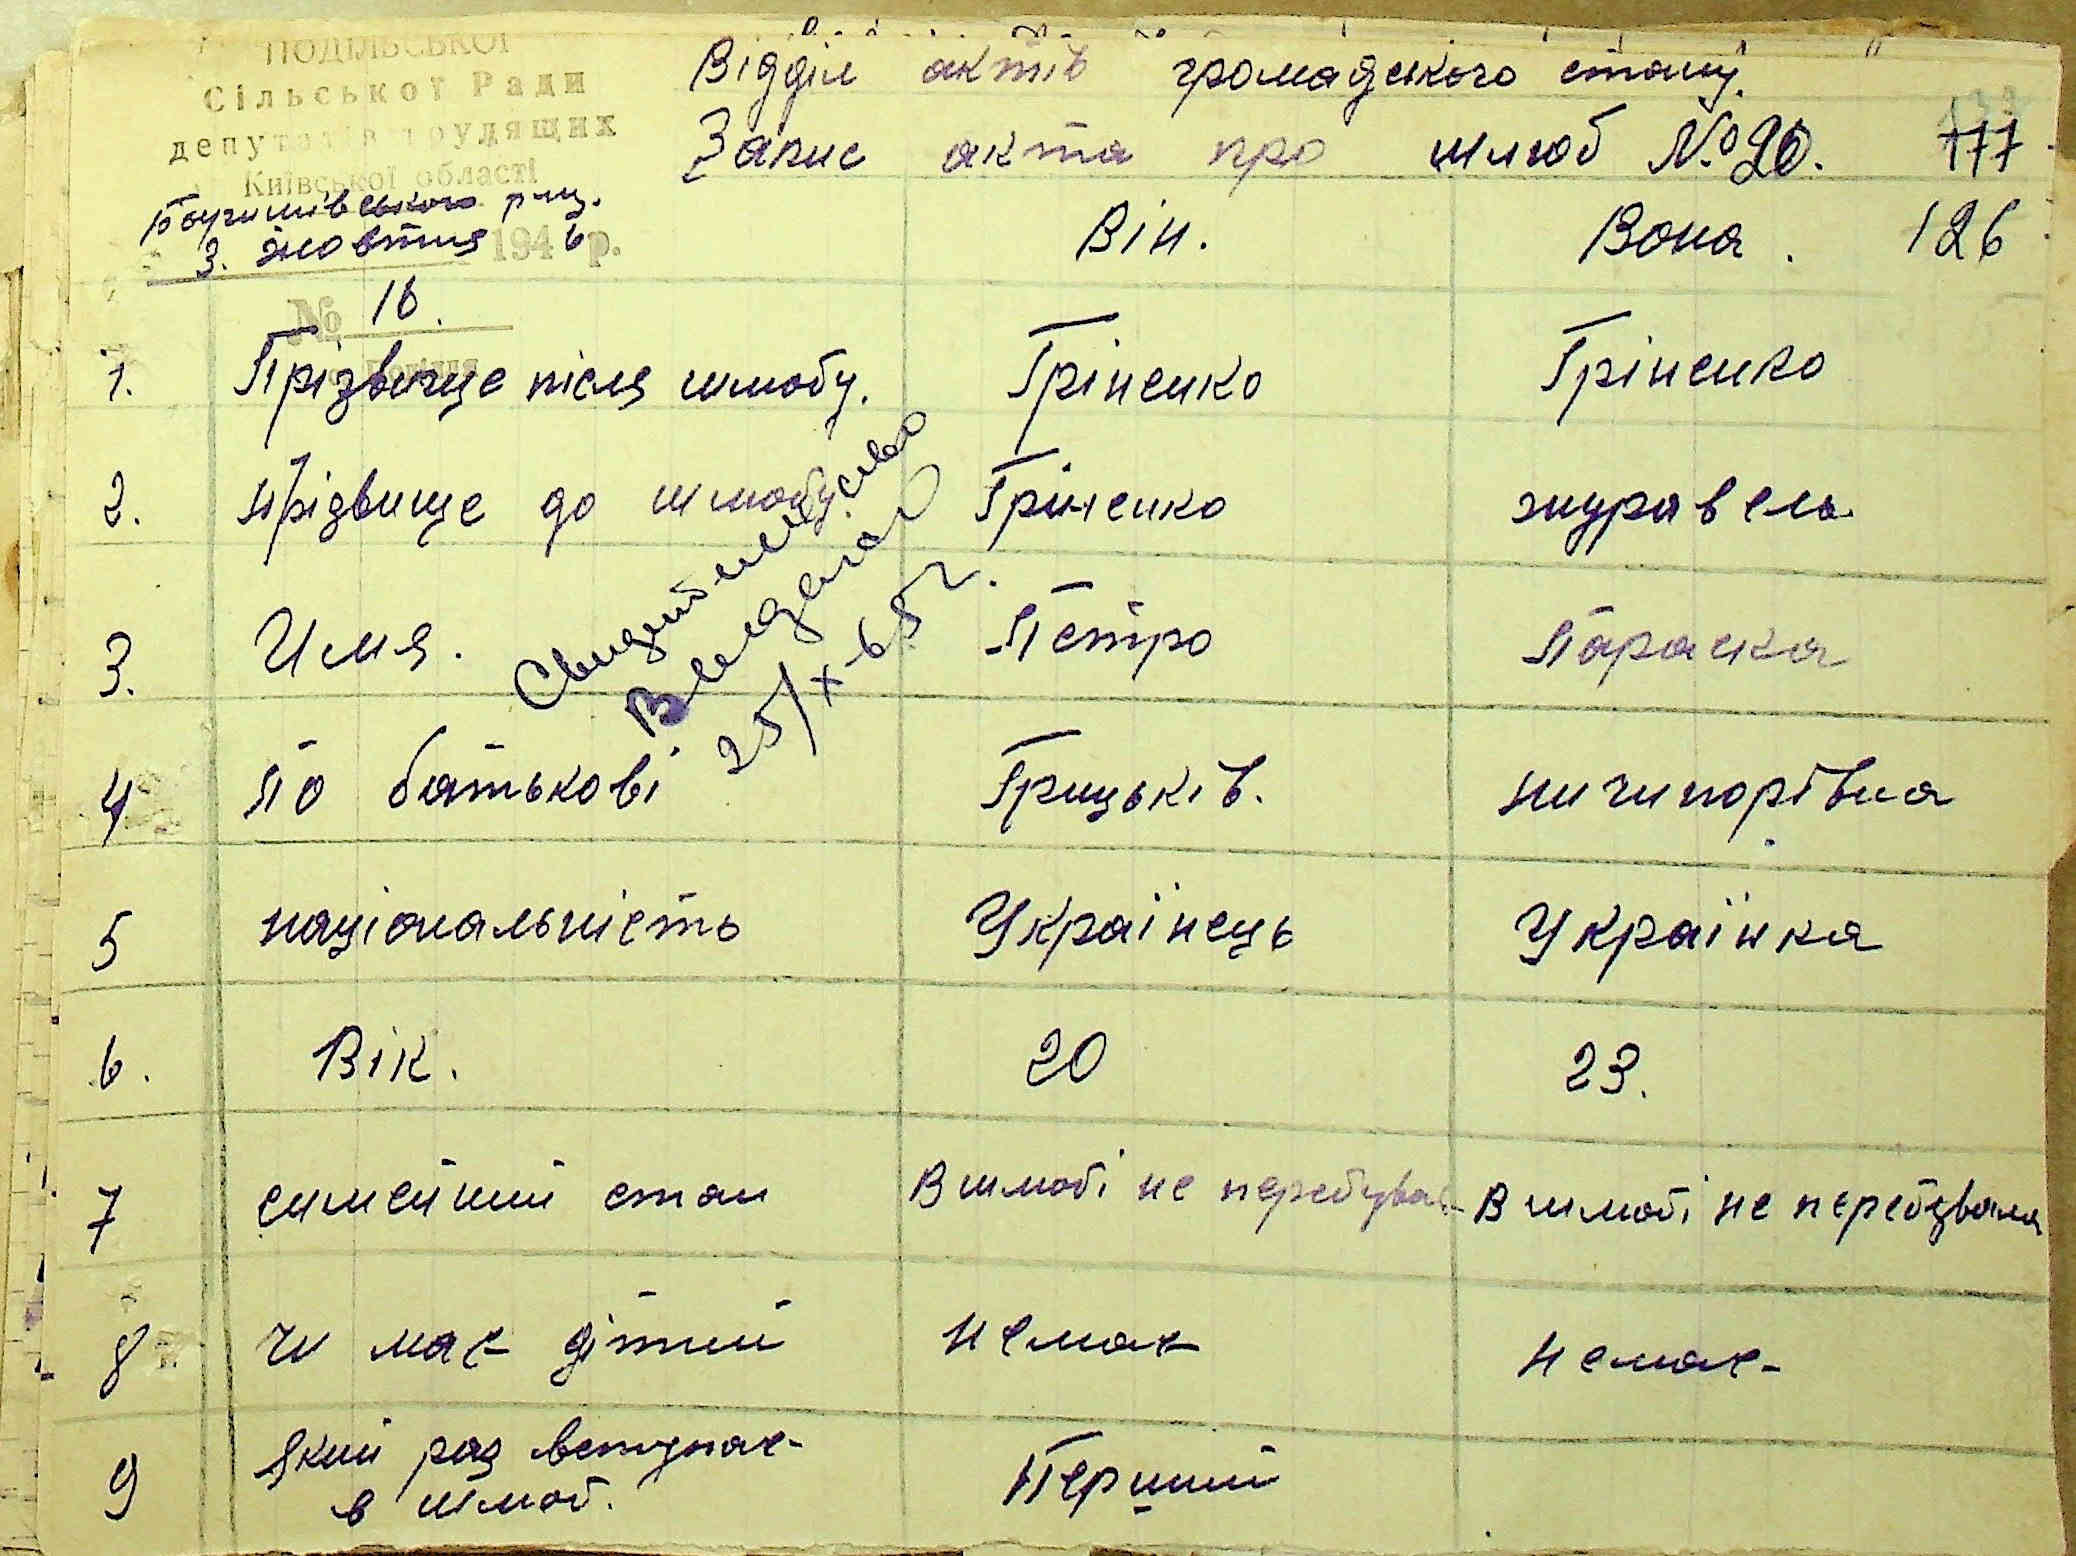 ПОДІЛЬСЬКОЇ
Сільської Ради
депутатів трудящих
Київської області
Баришівського р-ну.
3. жовтня 1946 р.
№ 16.
Відділ актів громадського стану.
Запис акта про шлюб №26. 177
Він. Вона. 126
1. Прізвище після шлюбу. Гріненко Гріненко
2. прізвище до шлюбу. Гріненко журавель
3. Имя. Петро Параска
4 По батькові Грицьків. ничипорівна
5 національність Українець Українка
6. Вік. 20 23.
7 симейний стан В шлюбі не перебував В шлюбі не перебувала
8 чи має дітий немає немає
9 який раз вступає Перший
в шлюб.
Свидетельство
Выдано
25/X-65 г.